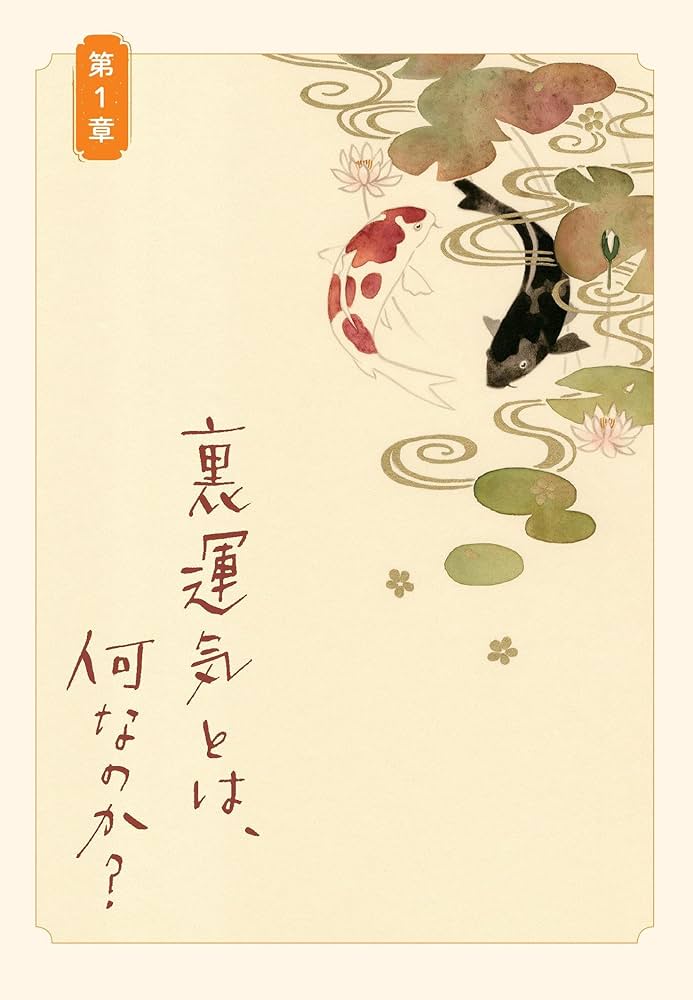 第1章
裏運気とは、
何なのか?